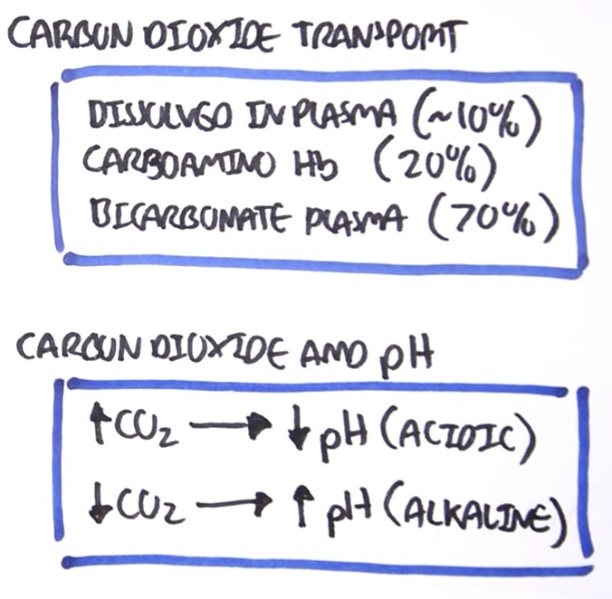 CARBON DIOXIDE TRANSPORT
DISSOLVED IN PLASMA (~10%)
CARBOAMINO Hb (20%)
BICARBONATE PLASMA (70%)
CARBON DIOXIDE AND pH
↑CO₂ → ↓ pH (ACIDIC)
↓CO₂ → ↑ pH (ALKALINE)